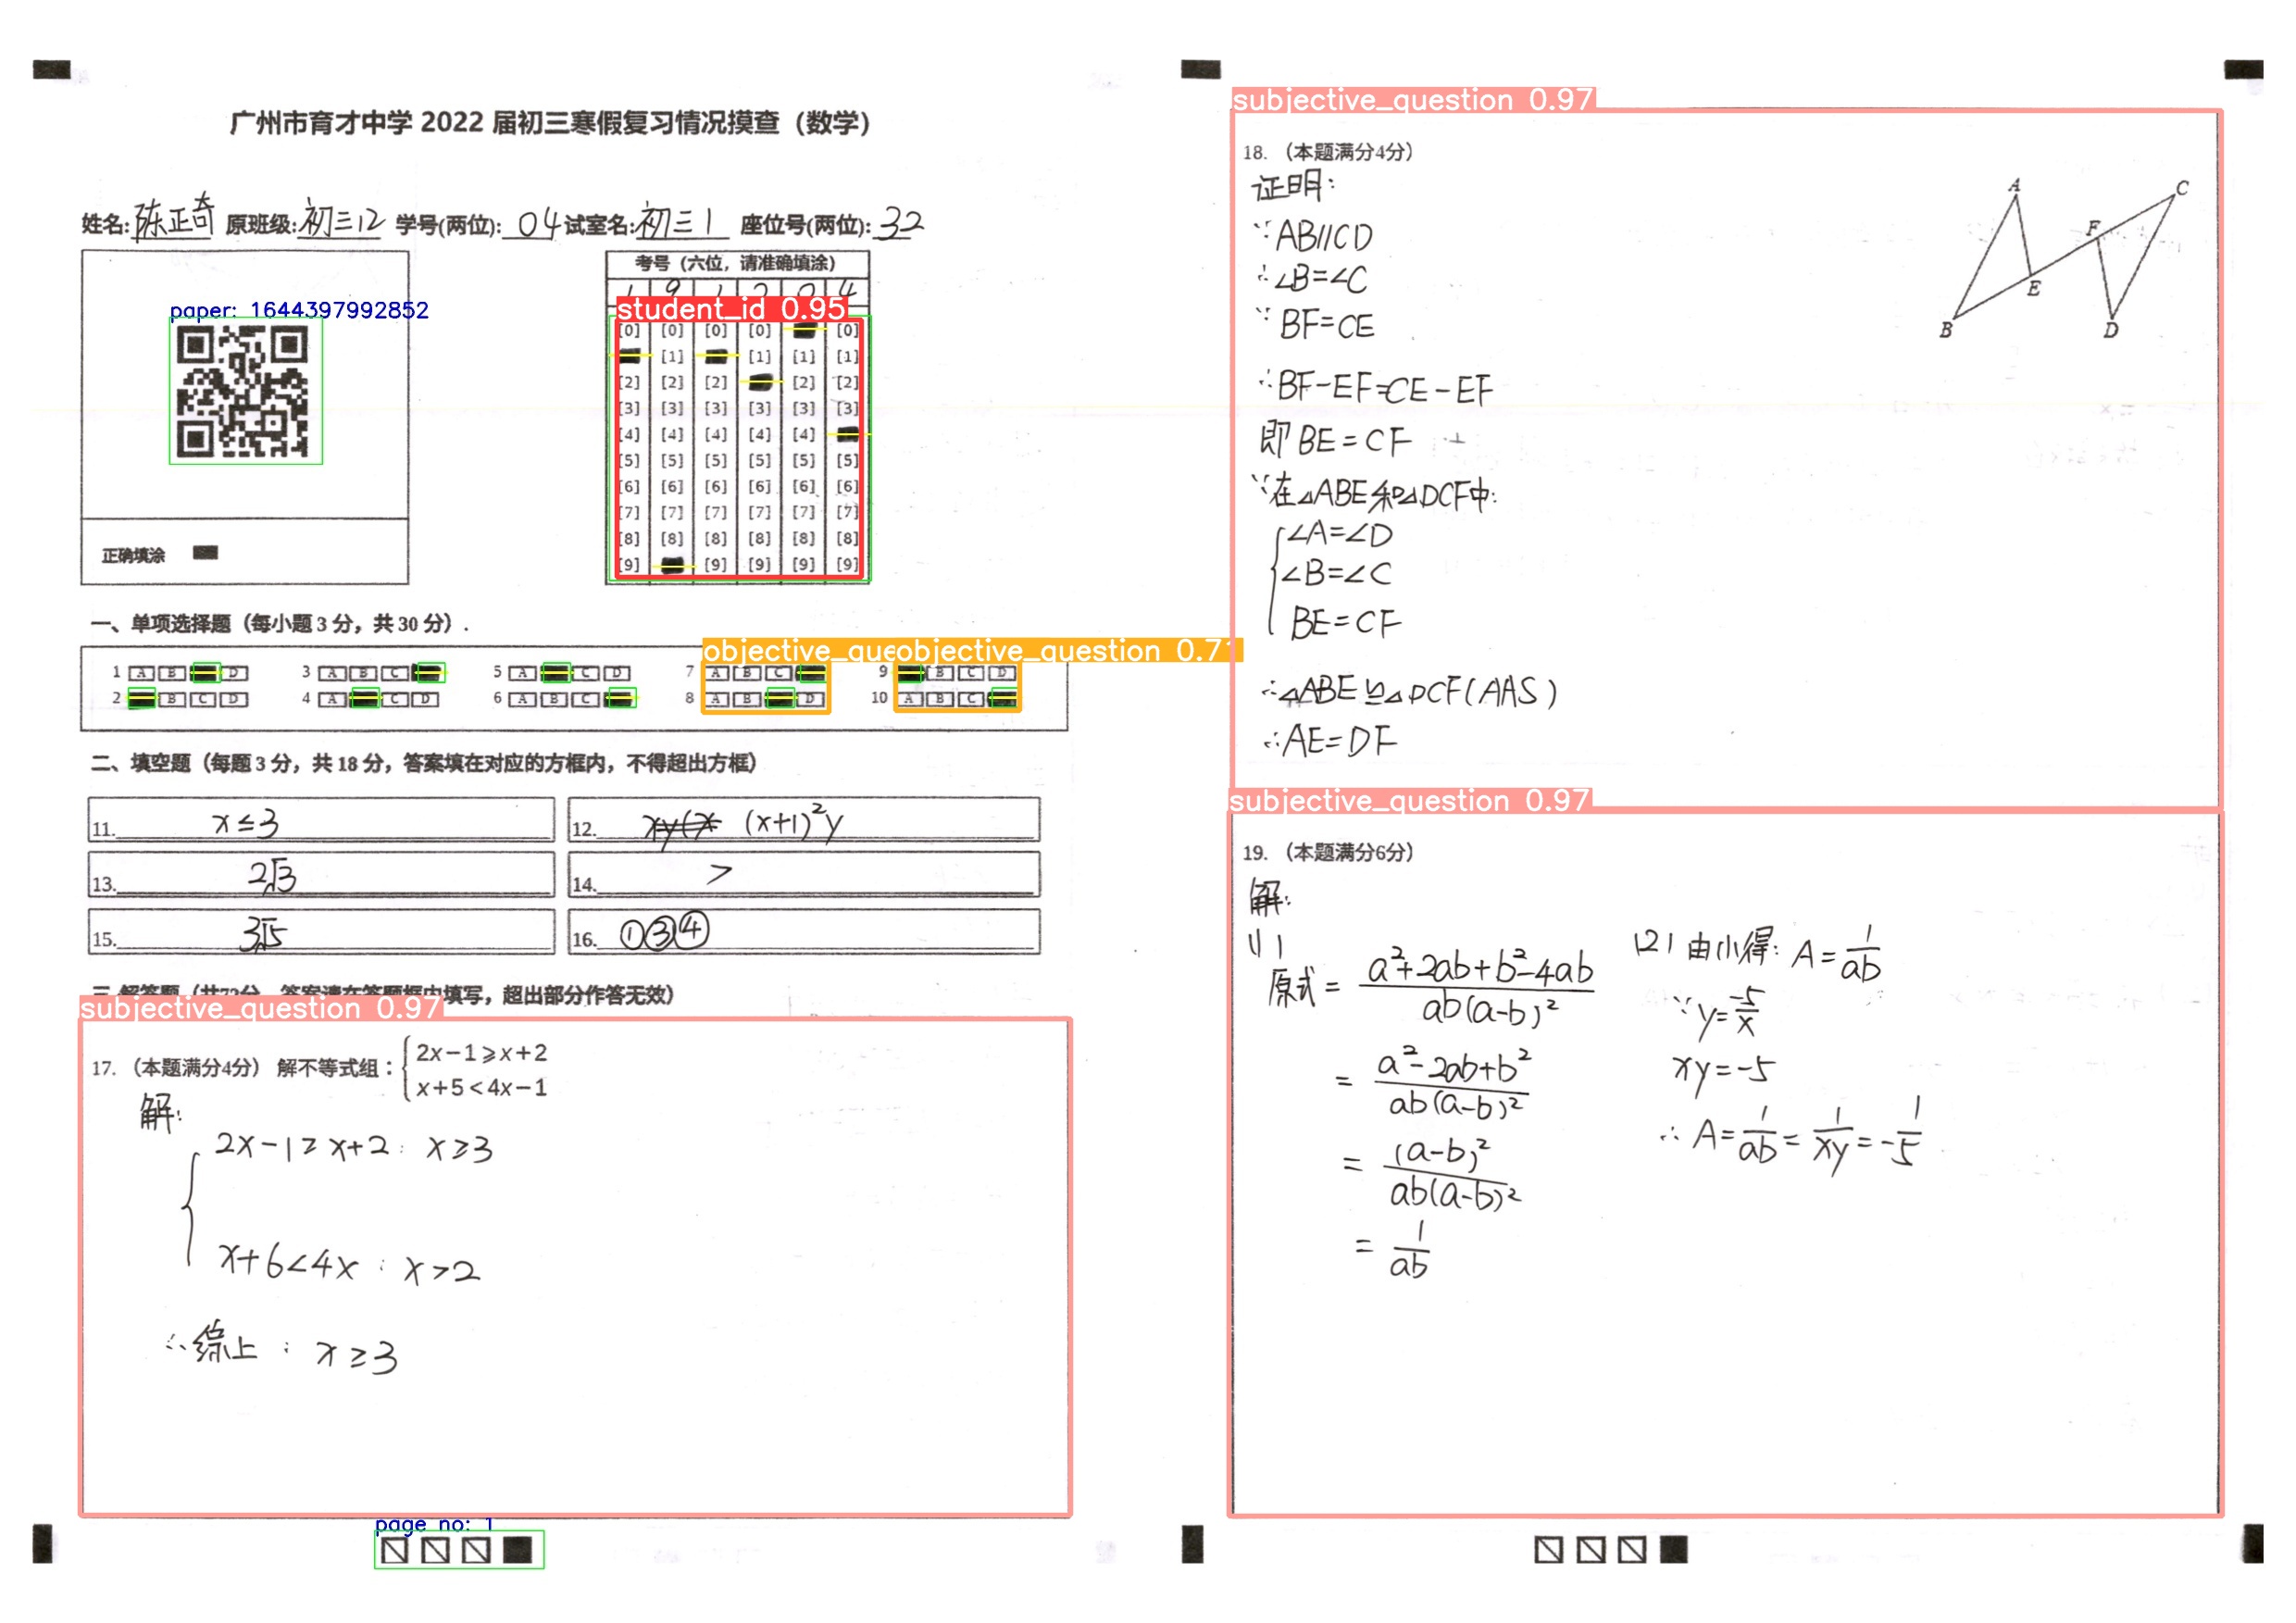 广州市育才中学 2022 届初三寒假复习情况摸查（数学）
姓名: 陈正奇 原班级: 初三12 学号(两位): 04 试室名: 初三1 座位号(两位): 32
考号（六位，请准确填涂）
1 9 1 2 0 4
paper: 1644397992852
student_id 0.95
[0] [0] [0] [0] [0]
[1] [1] [1] [1]
[2] [2] [2] [2] [2]
[3] [3] [3] [3] [3] [3]
[4] [4] [4] [4] [4]
[5] [5] [5] [5] [5] [5]
[6] [6] [6] [6] [6] [6]
[7] [7] [7] [7] [7] [7]
[8] [8] [8] [8] [8] [8]
[9] [9] [9] [9] [9]
正确填涂
一、单项选择题（每小题 3 分，共 30 分）.
objective_que objective_question 0.71
1 A B D 3 A B C 5 A C D 7 A B C 9 B C D
2 B C D 4 A C D 6 A B C 8 A B D 10 A B C
二、填空题（每题 3 分，共 18 分，答案填在对应的方框内，不得超出方框）
11. x≤3
12. (x+1)²y
13. 2√3
14. >
15. 3√5
16. ①③④
三 解答题（共72分 答案请在答题框内填写，超出部分作答无效）
subjective_question 0.97
17. （本题满分4分） 解不等式组：{2x−1⩾x+2
x+5<4x−1
解:
2x−1≥x+2: x≥3
x+6<4x: x>2
∴综上: x≥3
page no: 1
subjective_question 0.97
18. （本题满分4分）
A C F E B D
证明:
∵AB//CD
∴∠B=∠C
∵BF=CE
∴BF−EF=CE−EF
即BE=CF
∵在△ABE和△DCF中:
∠A=∠D
∠B=∠C
BE=CF
∴△ABE≌△DCF(AAS)
∴AE=DF
subjective_question 0.97
19. （本题满分6分）
解:
(1)
原式= (a²+2ab+b²−4ab)/(ab(a−b)²)
= (a²−2ab+b²)/(ab(a−b)²)
= (a−b)²/(ab(a−b)²)
= 1/ab
(2) 由(1)得: A=1/ab
∵y=−5/x
xy=−5
∴A=1/ab=1/xy=−1/5